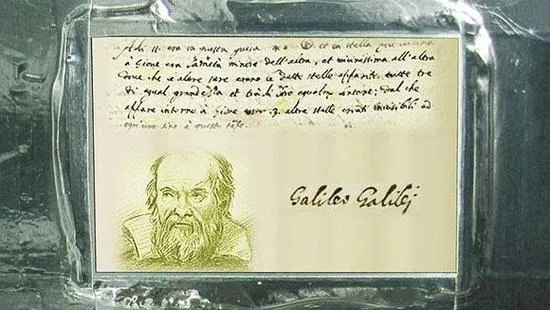 Adì 11. era in questa guisa ** et la stella più vicina
à Giove era la metà minore dell'altra, et vicinissima all'altra
dove che le altre sere erano le dette stelle apparite tutte tre
di egual grandezza et trà di loro egualm lontane: dal che
appare intorno à Giove esser 3. altre stelle erranti invisibili ad
ogn'uno sino à questo tempo.
Galileo Galilej